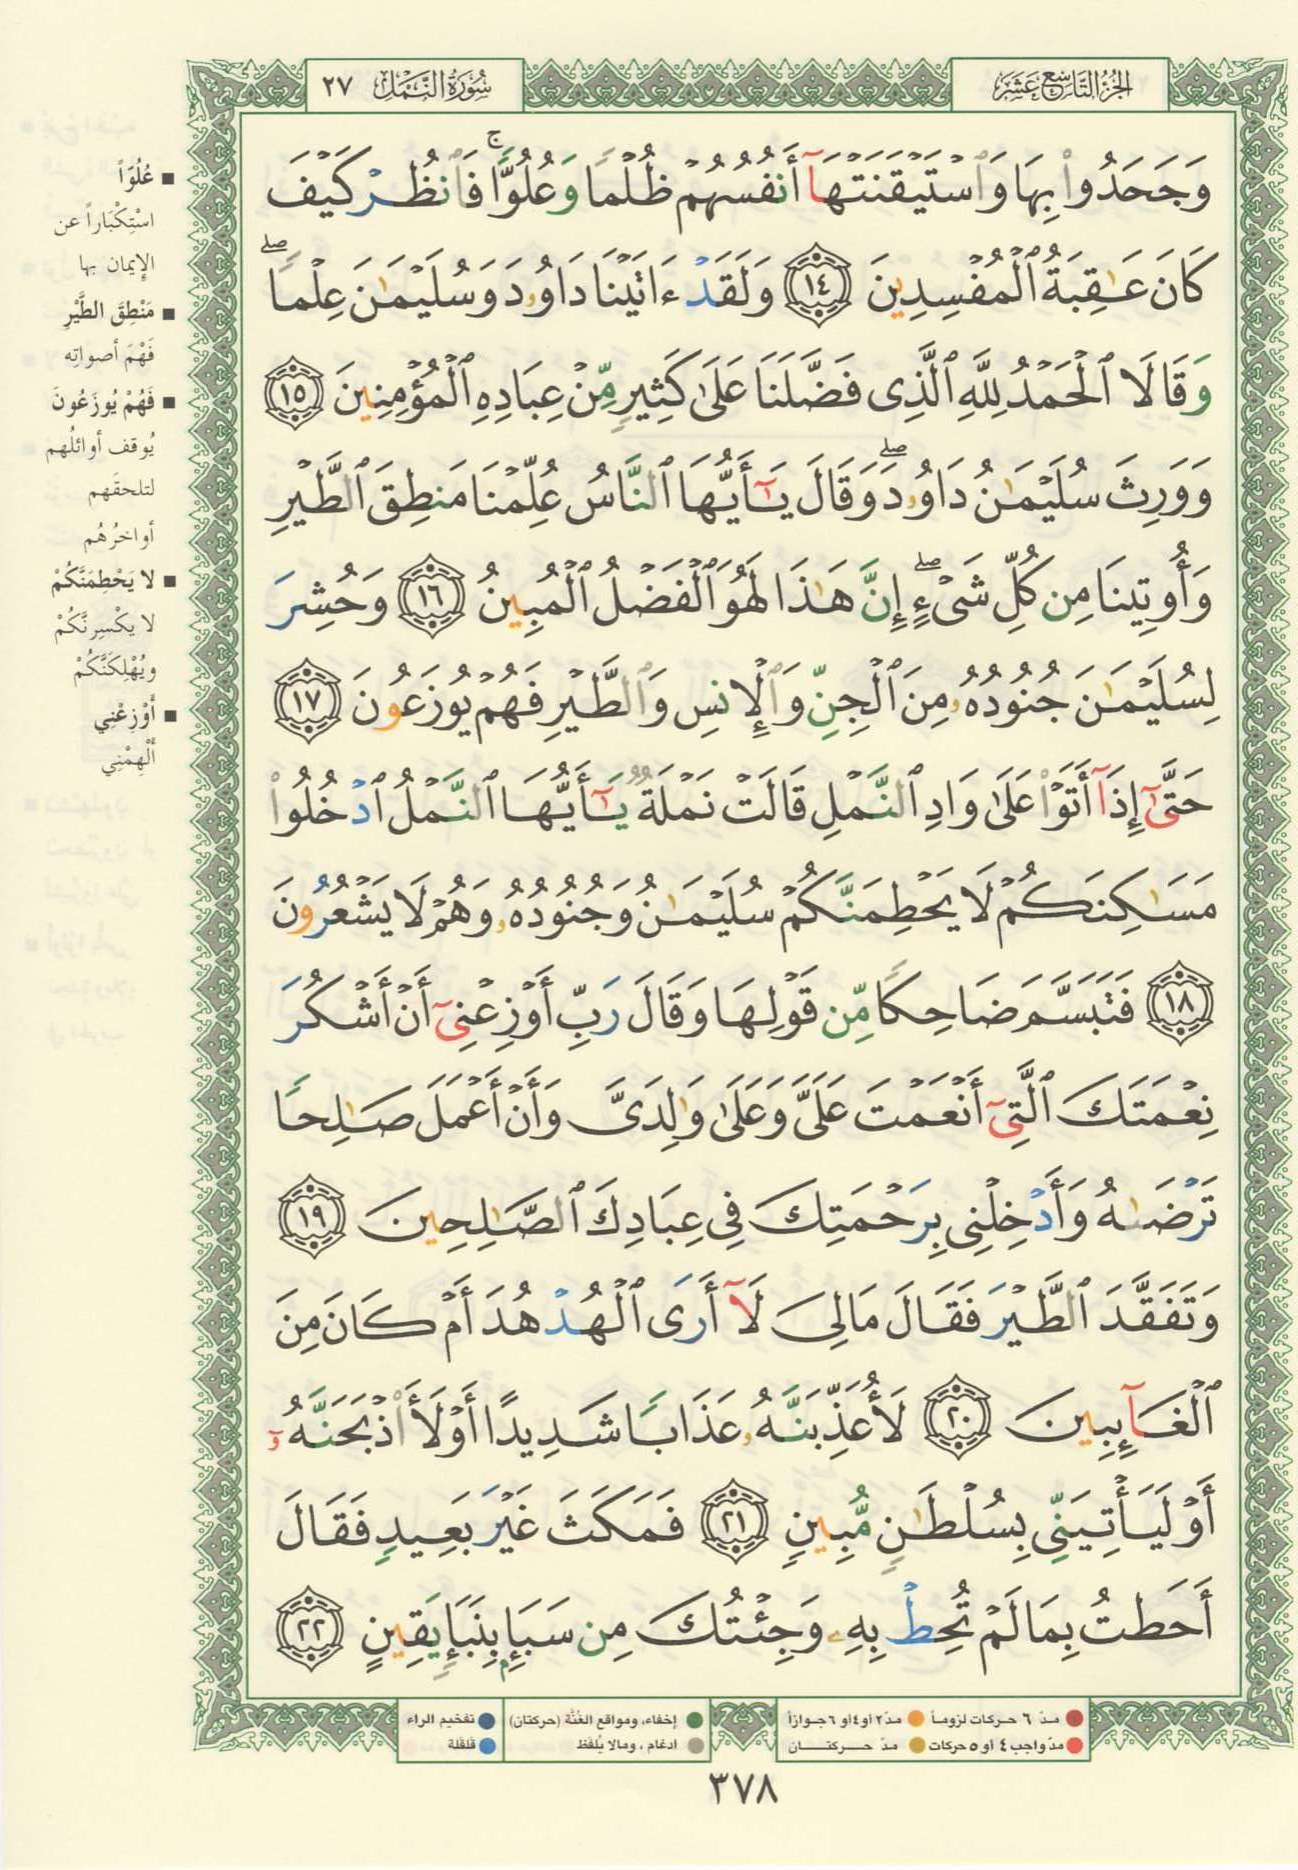 الجزء التاسع عشر
سورة النمل ٢٧
وَجَحَدُوا۟ بِهَا وَٱسْتَيْقَنَتْهَآ أَنفُسُهُمْ ظُلْمًا وَعُلُوًّا ۚ فَٱنظُرْ كَيْفَ
كَانَ عَٰقِبَةُ ٱلْمُفْسِدِينَ ١٤ وَلَقَدْ ءَاتَيْنَا دَاوُۥدَ وَسُلَيْمَٰنَ عِلْمًا ۖ
وَقَالَا ٱلْحَمْدُ لِلَّهِ ٱلَّذِى فَضَّلَنَا عَلَىٰ كَثِيرٍ مِّنْ عِبَادِهِ ٱلْمُؤْمِنِينَ ١٥
وَوَرِثَ سُلَيْمَٰنُ دَاوُۥدَ ۖ وَقَالَ يَٰٓأَيُّهَا ٱلنَّاسُ عُلِّمْنَا مَنطِقَ ٱلطَّيْرِ
وَأُوتِينَا مِن كُلِّ شَىْءٍ ۖ إِنَّ هَٰذَا لَهُوَ ٱلْفَضْلُ ٱلْمُبِينُ ١٦ وَحُشِرَ
لِسُلَيْمَٰنَ جُنُودُهُۥ مِنَ ٱلْجِنِّ وَٱلْإِنسِ وَٱلطَّيْرِ فَهُمْ يُوزَعُونَ ١٧
حَتَّىٰٓ إِذَآ أَتَوْا۟ عَلَىٰ وَادِ ٱلنَّمْلِ قَالَتْ نَمْلَةٌ يَٰٓأَيُّهَا ٱلنَّمْلُ ٱدْخُلُوا۟
مَسَٰكِنَكُمْ لَا يَحْطِمَنَّكُمْ سُلَيْمَٰنُ وَجُنُودُهُۥ وَهُمْ لَا يَشْعُرُونَ
١٨ فَتَبَسَّمَ ضَاحِكًا مِّن قَوْلِهَا وَقَالَ رَبِّ أَوْزِعْنِىٓ أَنْ أَشْكُرَ
نِعْمَتَكَ ٱلَّتِىٓ أَنْعَمْتَ عَلَىَّ وَعَلَىٰ وَٰلِدَىَّ وَأَنْ أَعْمَلَ صَٰلِحًا
تَرْضَىٰهُ وَأَدْخِلْنِى بِرَحْمَتِكَ فِى عِبَادِكَ ٱلصَّٰلِحِينَ ١٩
وَتَفَقَّدَ ٱلطَّيْرَ فَقَالَ مَالِىَ لَآ أَرَى ٱلْهُدْهُدَ أَمْ كَانَ مِنَ
ٱلْغَآئِبِينَ ٢٠ لَأُعَذِّبَنَّهُۥ عَذَابًا شَدِيدًا أَوْ لَأَا۟ذْبَحَنَّهُۥٓ
أَوْ لَيَأْتِيَنِّى بِسُلْطَٰنٍ مُّبِينٍ ٢١ فَمَكَثَ غَيْرَ بَعِيدٍ فَقَالَ
أَحَطتُ بِمَا لَمْ تُحِطْ بِهِۦ وَجِئْتُكَ مِن سَبَإٍۭ بِنَبَإٍ يَقِينٍ ٢٢
■ عُلُوّاً
اسْتِكْبَاراً عن
الإيمان بها
■ مَنْطِقَ الطَّيْرِ
فَهْمَ أصواتِه
■ فَهُمْ يُوزَعُونَ
يُوقف أوائلُهم
لتلحقَهم
أواخرُهُم
■ لا يَحْطِمَنَّكُمْ
لا يكْسِرنَّكُمْ
ويُهْلِكَنَّكُمْ
■ أَوْزِعْنِي
أَلْهِمْنِي
مدّ ٦ حركات لزوماً مدّ ٢ أو ٤ أو ٦ جوازاً
مدّ واجب ٤ أو ٥ حركات مدّ حركتان
إخفاء، ومواقع الغُنَّة (حركتان) تفخيم الراء
ادغام ، ومالا يُلفَظ قلقلة
٣٧٨